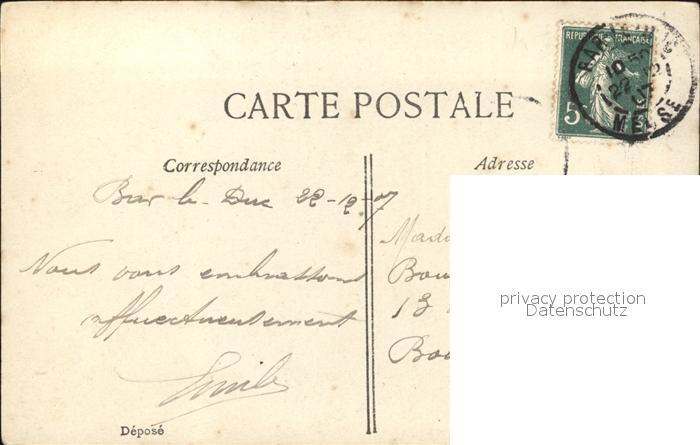 REPUBLIQUE FRANÇAISE
5
BAR-LE-DUC
10
22
MEUSE
CARTE POSTALE
Correspondance
Adresse
Bar le-Duc 22-12-07
Mada
Nous vous embrassons
Bou
affectueusement
13
Bou
Emile
privacy protection
Datenschutz
Déposé